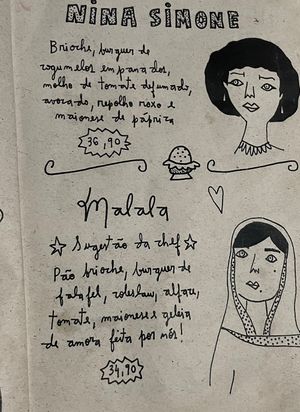 NINA SIMONE
Brioche, burguer de
cogumelos empanados,
molho de tomate defumado,
avocado, repolho roxo e
maionese de páprica
36,90
Malala
Sugestão da chef
Pão brioche, burguer de
falafel, coleslaw, alface,
tomate, maionese e geleia
de amora feita por nós!
34,90